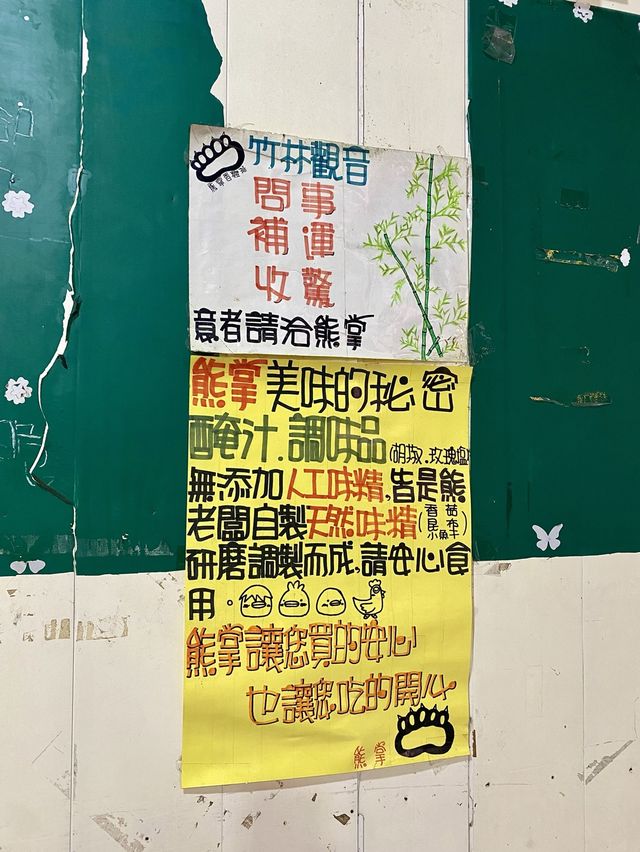 竹林觀音
熊掌
問事
補運
收驚
意者請洽熊掌
熊掌美味的秘密
醃汁.調味品(胡椒.玫瑰鹽)
無添加人工味精,皆是熊
老闆自製天然味精(香菇 昆布 小魚干)
研磨調製而成,請安心食
用。
熊掌讓您買的安心
也讓您吃的開心
熊掌